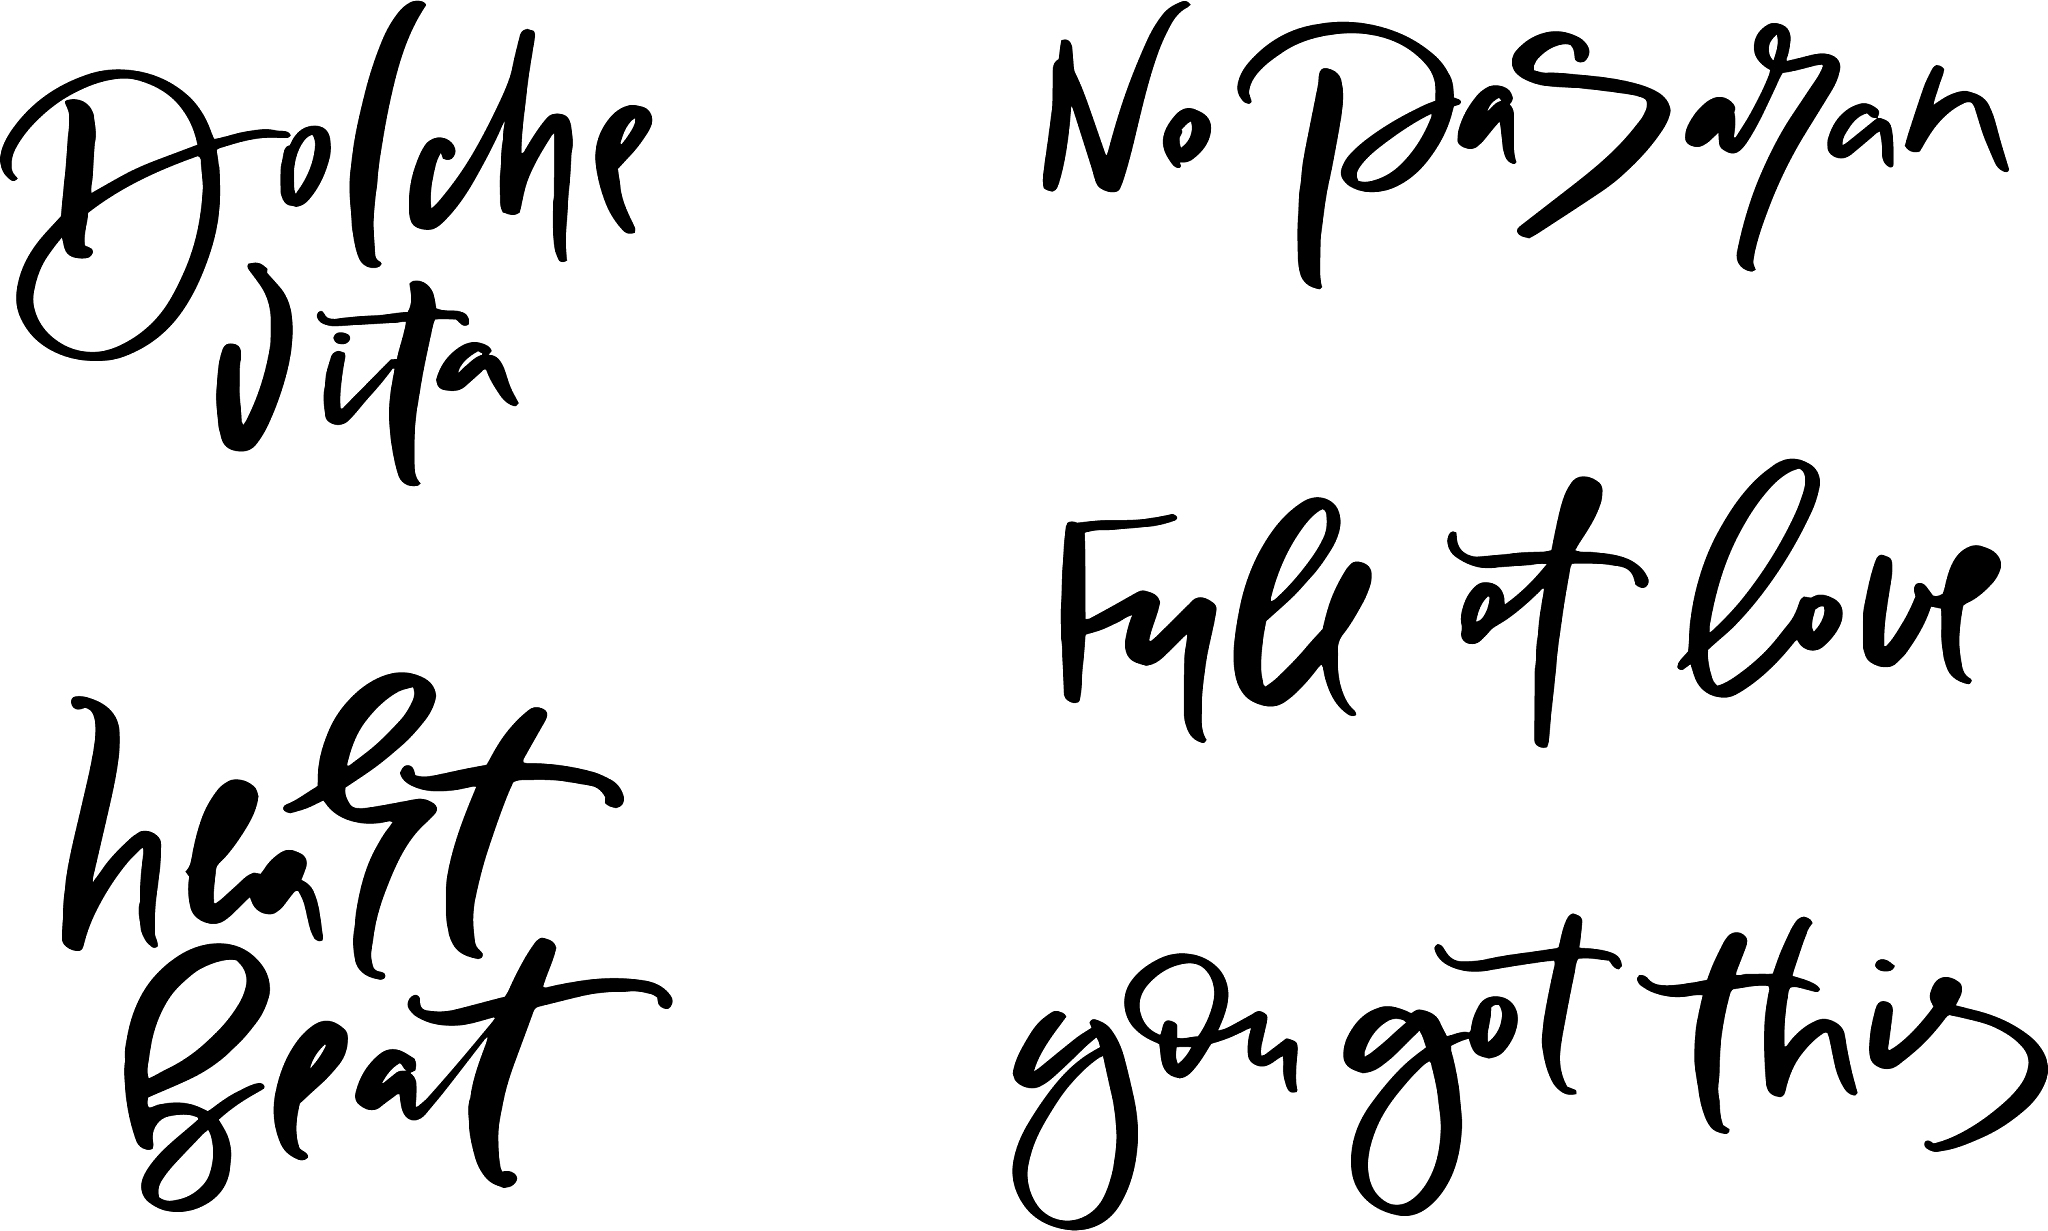 Dolche
Vita
No Pasaran
Full of love
heart
Beat
you got this